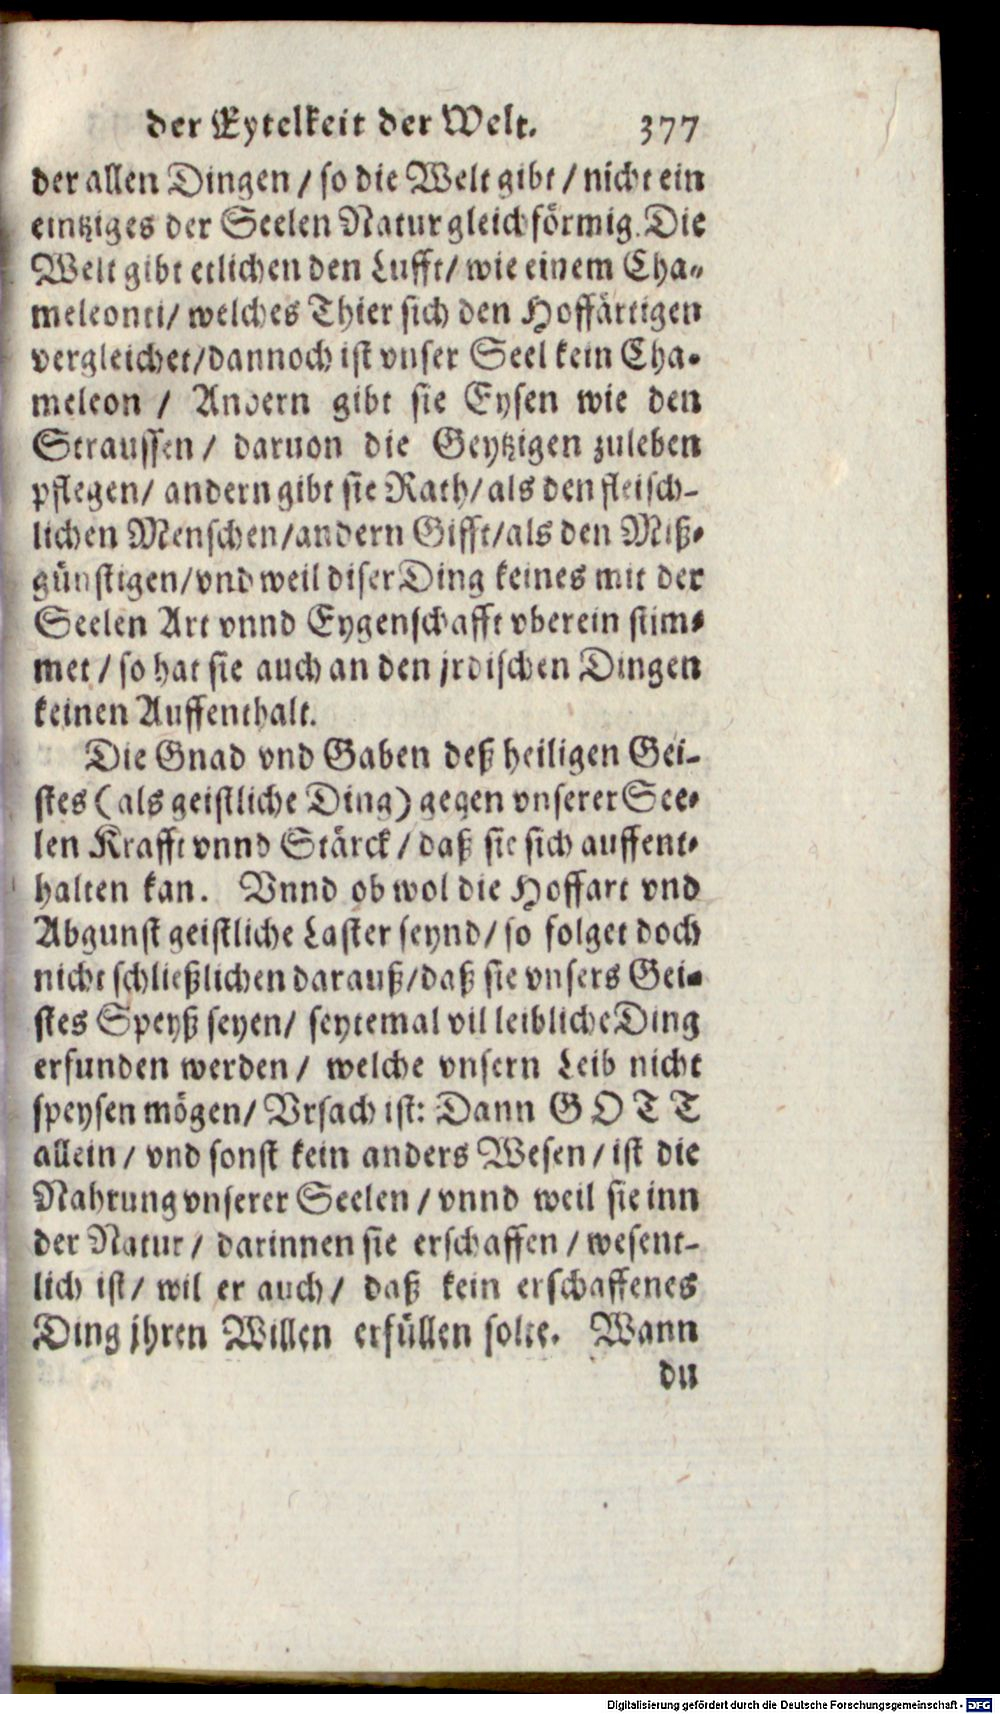 der Eytelkeit der Welt. 377
der allen Dingen / so die Welt gibt / nicht ein
eintziges der Seelen Natur gleichförmig. Die
Welt gibt etlichen den Lufft / wie einem Cha-
meleonti / welches Thier sich den Hoffärtigen
vergleichet / dannoch ist vnser Seel kein Cha-
meleon / Andern gibt sie Eysen wie den
Straussen / daruon die Geytzigen zuleben
pflegen / andern gibt sie Kath / als den fleisch-
lichen Menschen / andern Gifft / als den Miß-
günstigen / vnd weil diser Ding keines mit der
Seelen Art vnnd Eygenschafft vberein stim-
met / so hat sie auch an den jrdischen Dingen
keinen Auffenthalt.
Die Gnad vnd Gaben deß heiligen Gei-
stes (als geistliche Ding) gegen vnserer See-
len Krafft vnnd Stärck / daß sie sich auffent-
halten kan. Vnnd ob wol die Hoffart vnd
Abgunst geistliche Laster seynd / so folget doch
nicht schließlichen darauß / daß sie vnsers Gei-
stes Speyß seyen / seytemal vil leibliche Ding
erfunden werden / welche vnsern Leib nicht
speysen mögen / Vrsach ist: Dann GOTT
allein / vnd sonst kein anders Wesen / ist die
Nahrung vnserer Seelen / vnnd weil sie inn
der Natur / darinnen sie erschaffen / wesent-
lich ist / wil er auch / daß kein erschaffenes
Ding jhren Willen erfüllen solte. Wann
du
Digitalisierung gefördert durch die Deutsche Forschungsgemeinschaft - DFG